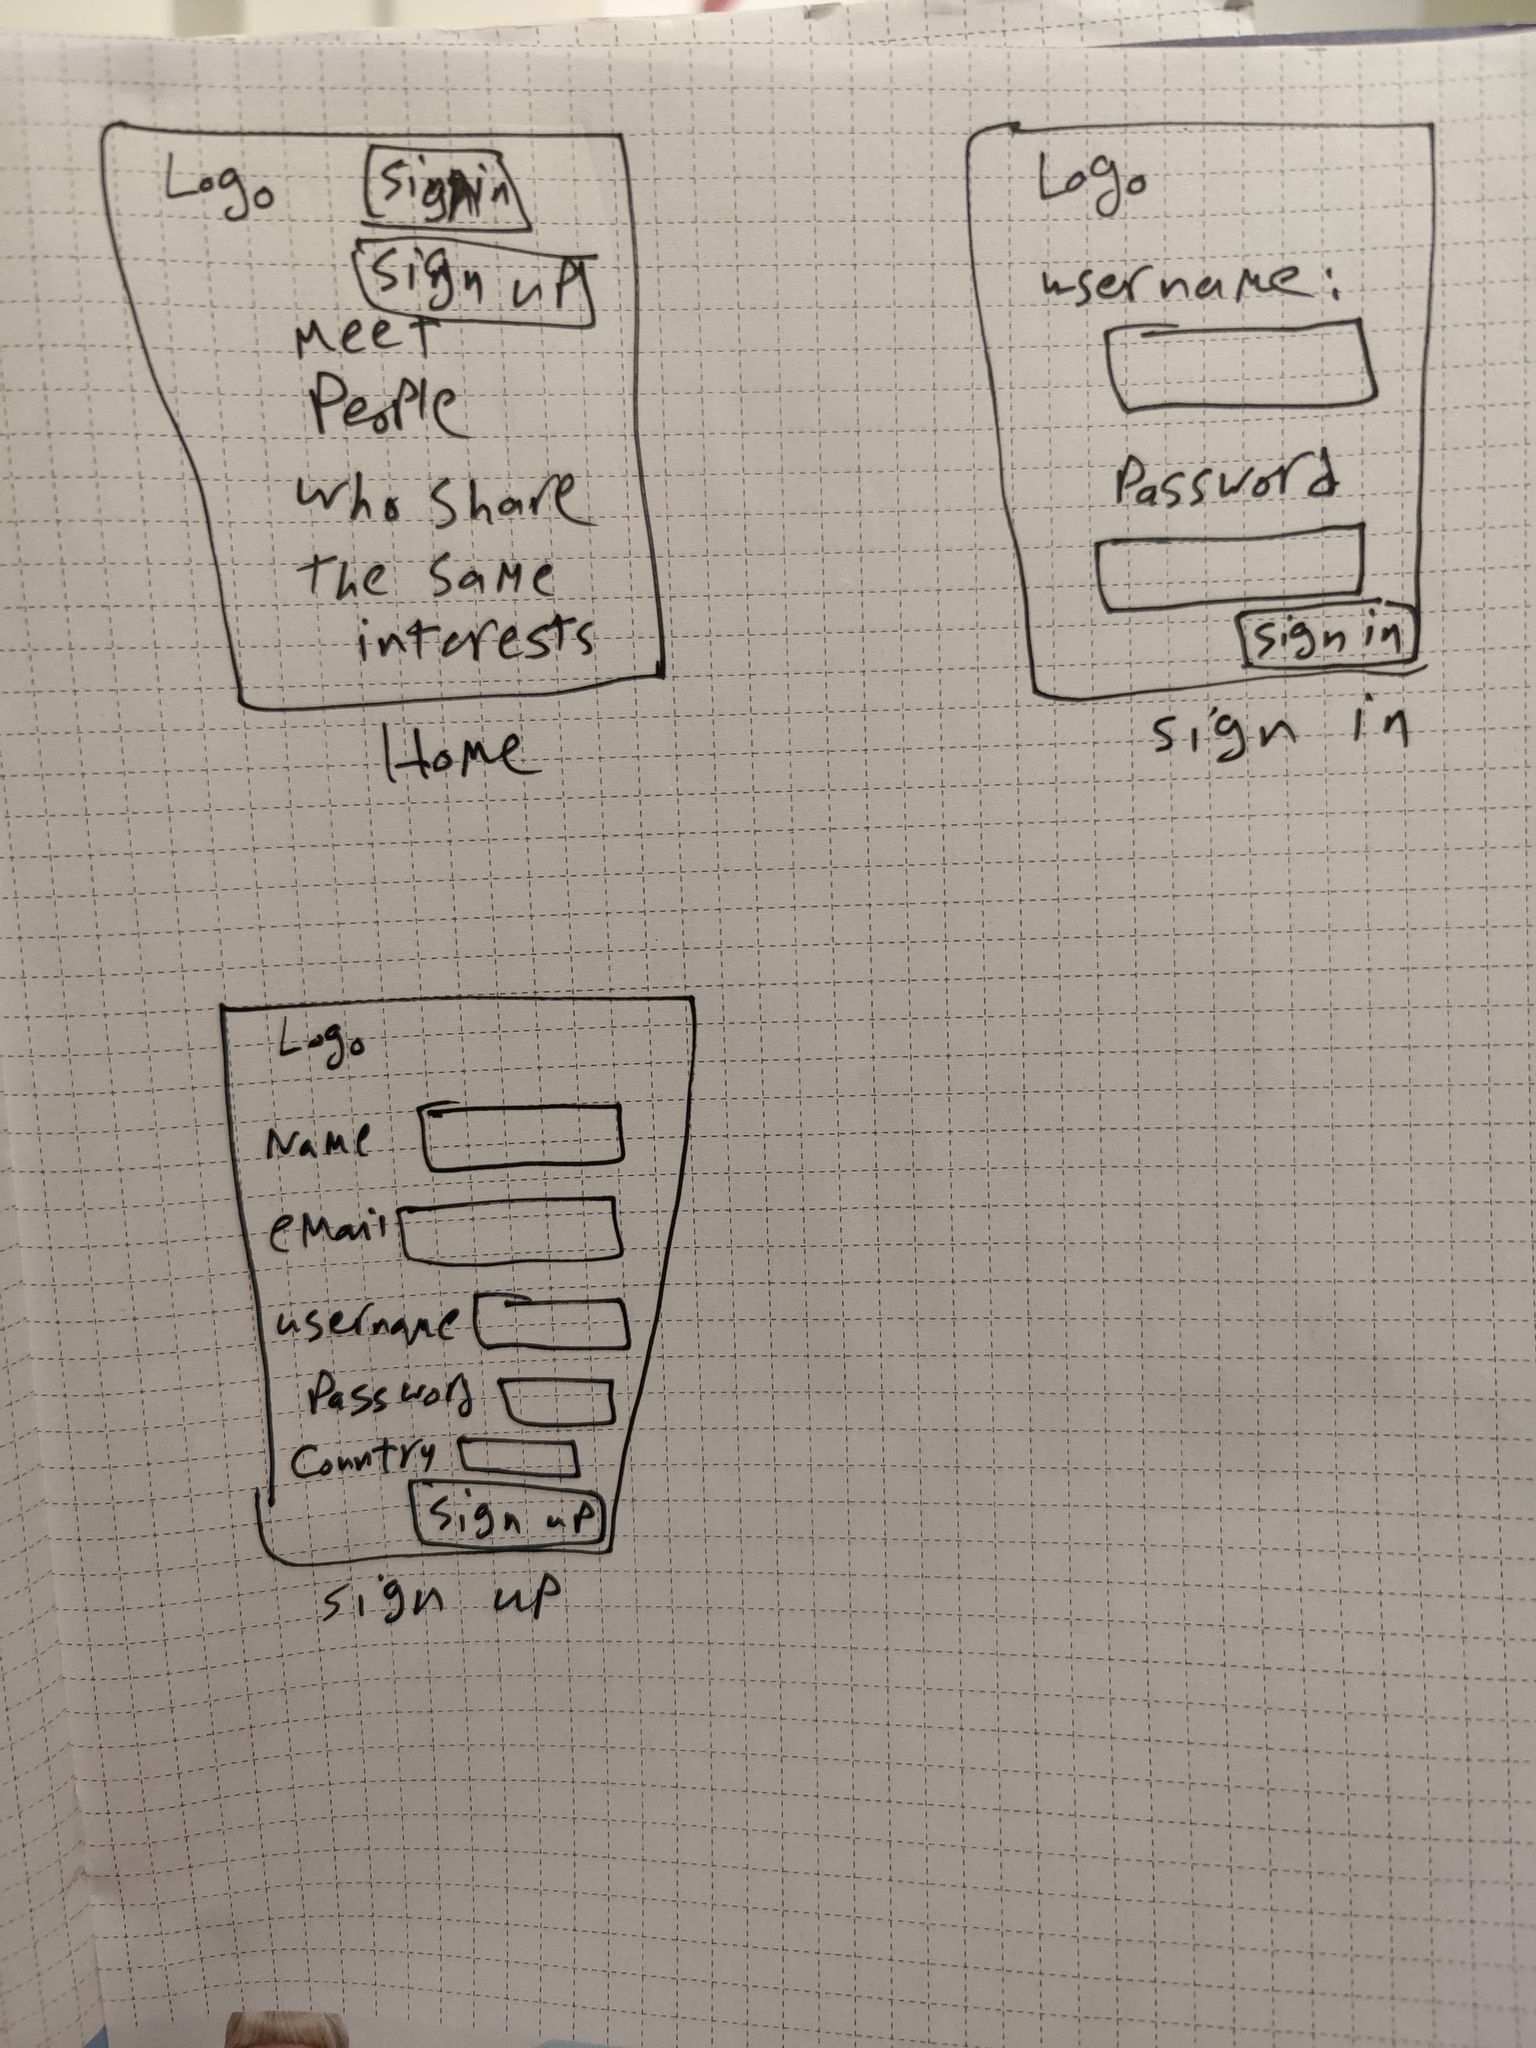 Logo
Sign in
Sign up
Meet
People
who share
the same
interests
Home
Logo
username:
Password
sign in
sign in
Logo
Name
eMail
username
Password
Country
Sign up
sign up